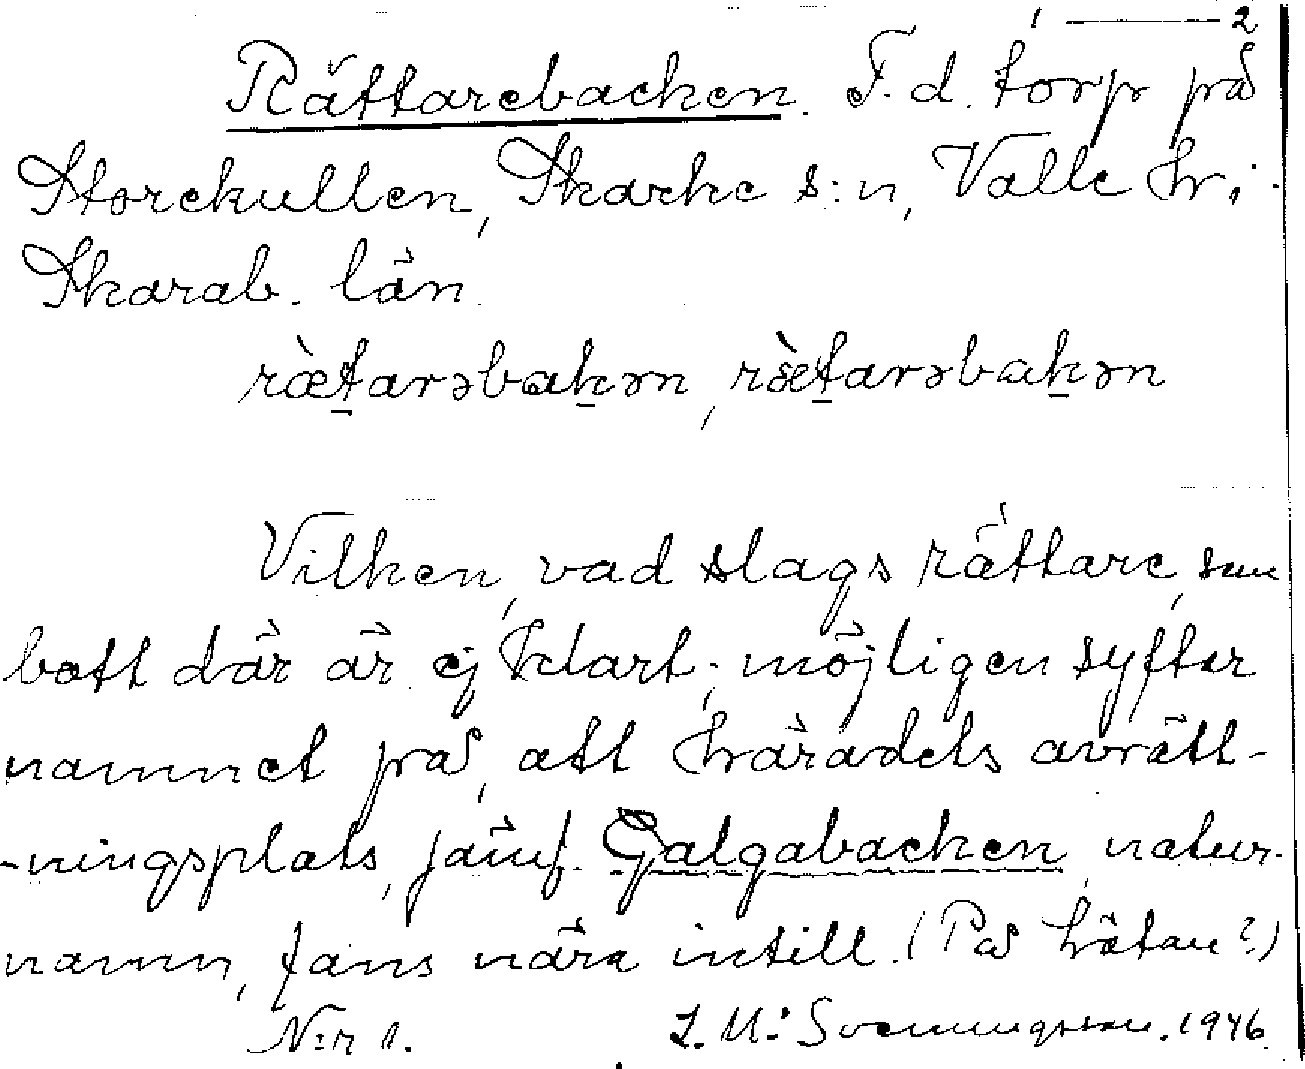 1 — 2
Rättarebacken. F.d. torp på
Storekullen, Skarke s:n, Valle hr.
Skarab. län.
ræ̀tarəbakən, ræ̀tarəbakən
Vilken, vad slags rättare, som
bott där är ej klart; möjligen syftar
namnet på, att häradets avrätt-
-ningsplats, jämf. Galgabacken, natur-
namn, fans nära intill. (På
N:r 1. 1946.